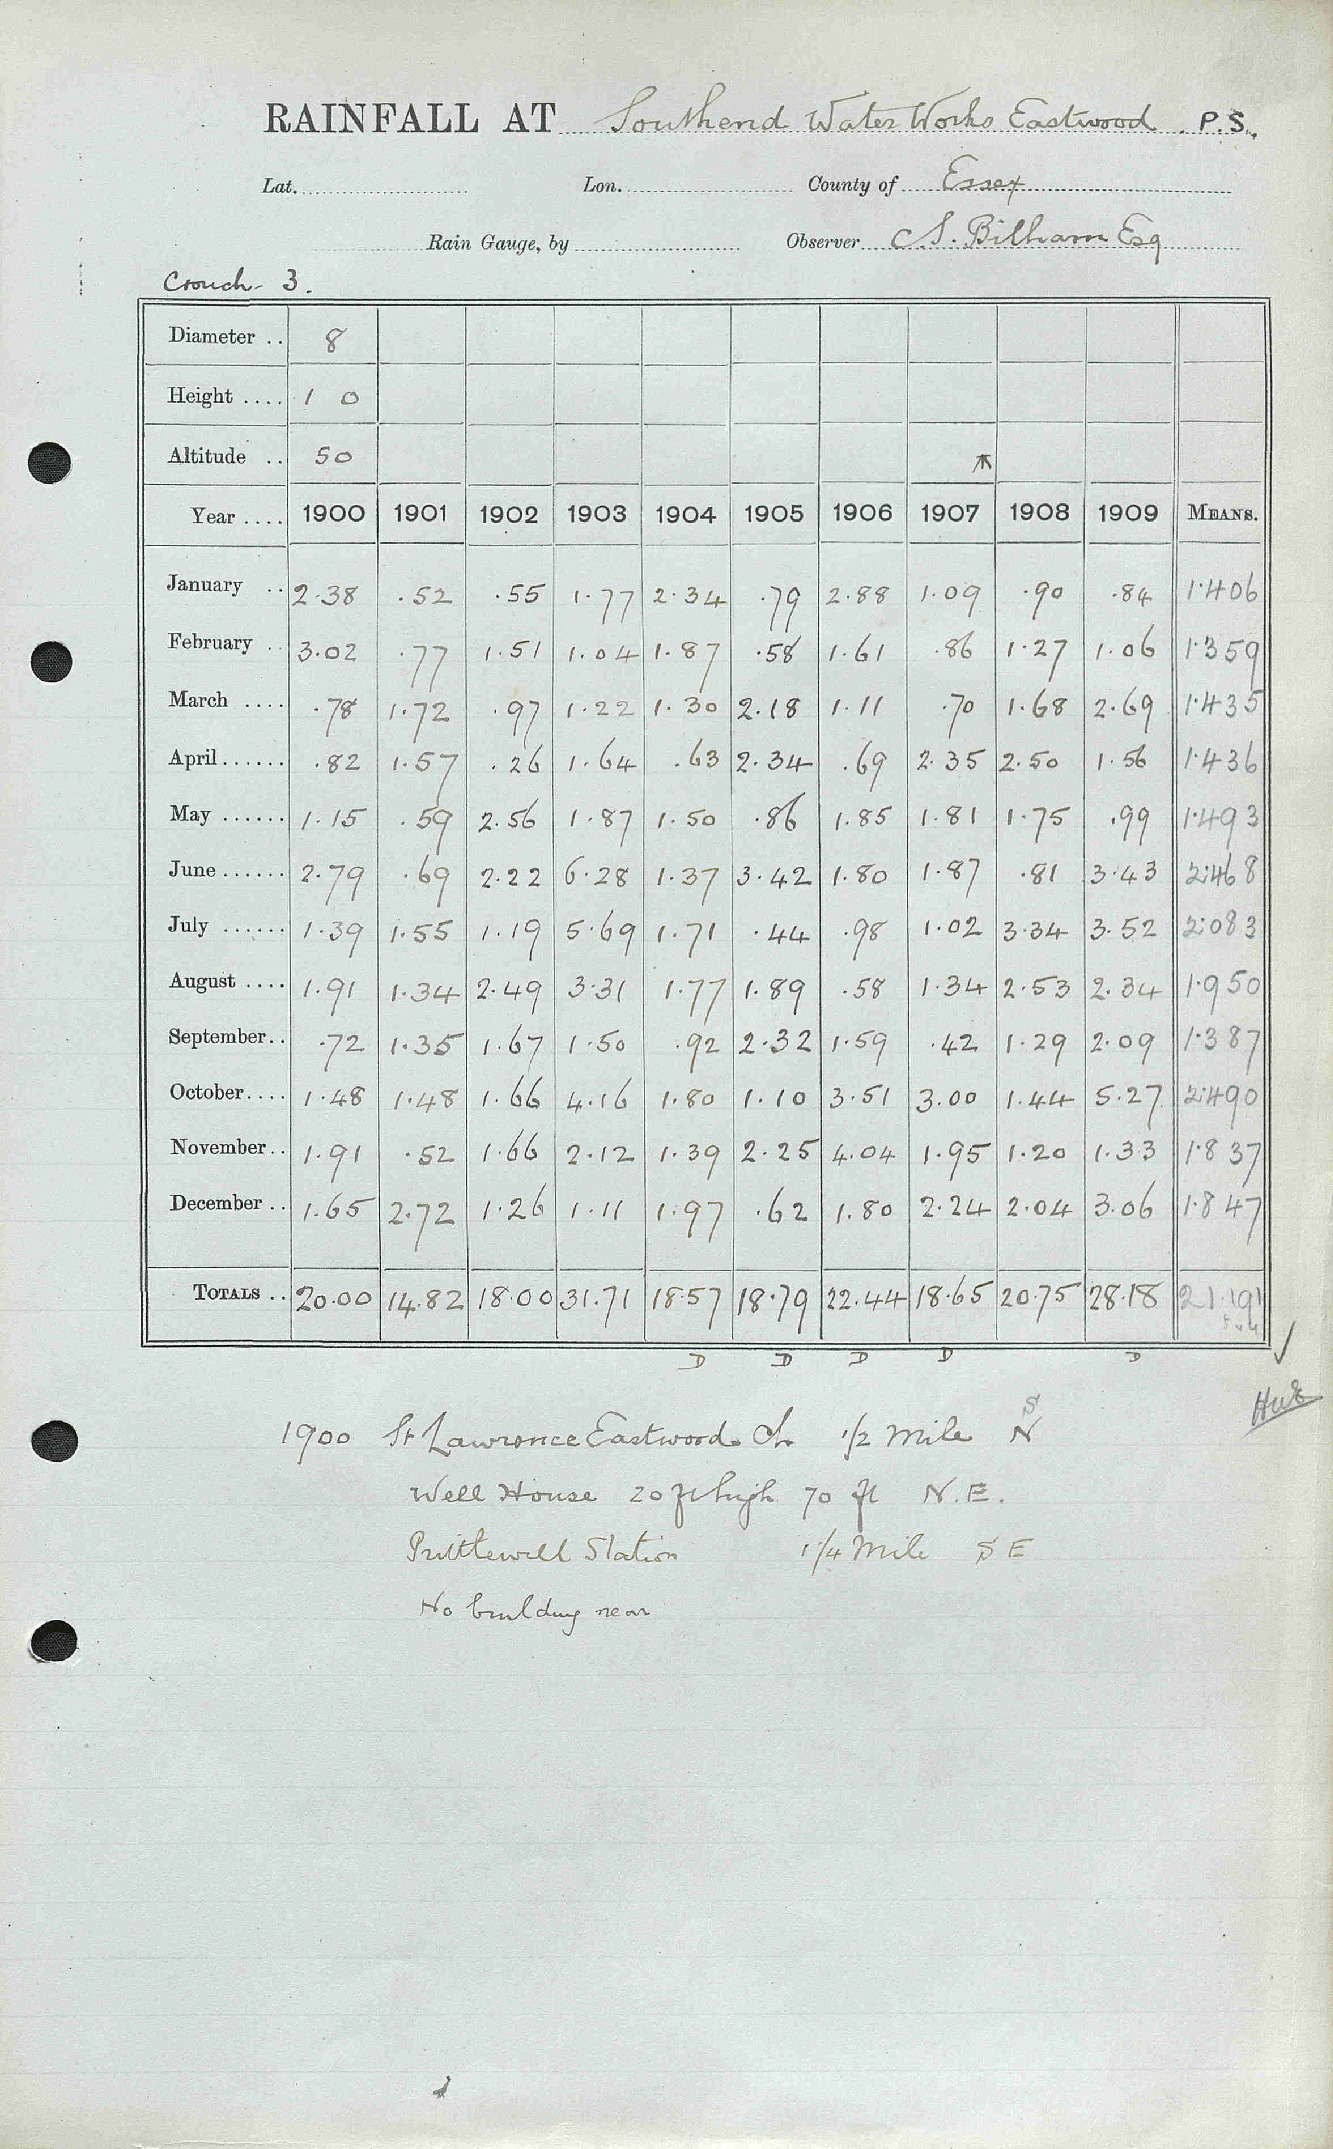 RAINFALL AT Southend Water Works Eastwood P.S.
Lat. Lon. County of Essex
Rain Gauge, by Observer S. Bilham Esq
Crouch 3.
Diameter .. 8
Height .... 1 0
Altitude .. 50
Year .... 1900 1901 1902 1903 1904 1905 1906 1907 1908 1909 MEANS.
January .. 2.38 .52 .55 1.77 2.34 .79 2.88 1.09 .90 .84 1.406
February .. 3.02 .77 1.51 1.04 1.87 .58 1.61 .86 1.27 1.06 1.359
March .... .78 1.72 .97 1.22 1.30 2.18 1.11 .70 1.68 2.69 1.435
April...... .82 1.57 .26 1.64 .63 2.34 .69 2.35 2.50 1.56 1.436
May ...... 1.15 .59 2.56 1.87 1.50 .86 1.85 1.81 1.75 .99 1.493
June...... 2.79 .69 2.22 6.28 1.37 3.42 1.80 1.87 .81 3.43 2.468
July ...... 1.39 1.55 1.19 5.69 1.71 .44 .98 1.02 3.34 3.52 2.083
August .... 1.91 1.34 2.49 3.31 1.77 1.89 .58 1.34 2.53 2.34 1.950
September.. .72 1.35 1.67 1.50 .92 2.32 1.59 .42 1.29 2.09 1.387
October.... 1.48 1.48 1.66 4.16 1.80 1.10 3.51 3.00 1.44 5.27 2.490
November.. 1.91 .52 1.66 2.12 1.39 2.25 4.04 1.95 1.20 1.33 1.837
December .. 1.65 2.72 1.26 1.11 1.97 .62 1.80 2.24 2.04 3.06 1.847
TOTALS .. 20.00 14.82 18.00 31.71 18.57 18.79 22.44 18.65 20.75 28.18 21.191
D D D D D
1900 St Lawrence Eastwood Ch 1/2 Mile N S
Well House 20 ft high 70 ft N.E.
Prittlewell Station 1 1/4 Mile S E
No building near